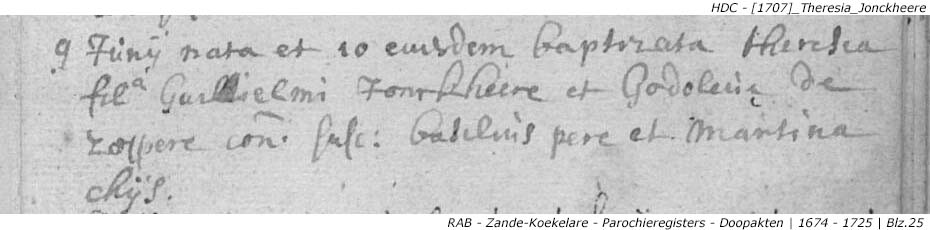 HDC - [1707]_Theresia_Jonckheere
9 Junij nata et 10 eiusdem baptizata theresia
fil^a Guillielmi Jonckheere et Godoleivę de
zoppere con. susc: basilius pere et Martina
chijs.
RAB - Zande-Koekelare - Parochieregisters - Doopakten | 1674 - 1725 | Blz.25